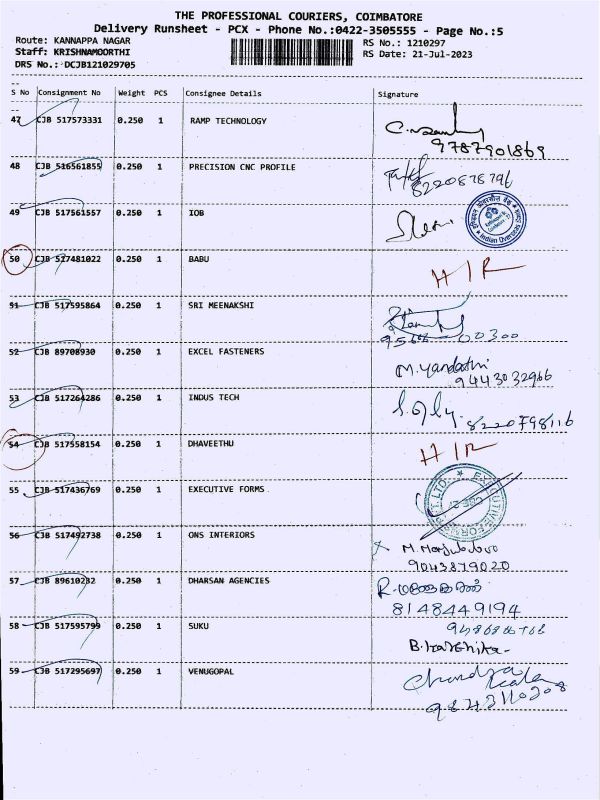 THE PROFESSIONAL COURIERS, COIMBATORE
Delivery Runsheet - PCX - Phone No.:0422-3505555 - Page No.:5
Route: KANNAPPA NAGAR
RS No.: 1210297
Staff: KRISHNAMOORTHI
RS Date: 21-Jul-2023
DRS No.: DCJB121029705
S No Consignment No Weight PCS Consignee Details Signature
47 CJB 517573331 0.250 1 RAMP TECHNOLOGY
9787901869
48 CJB 516561855 0.250 1 PRECISION CNC PROFILE
8220878796
49 CJB 517561557 0.250 1 IOB
Indian Overseas
50 CJB 527481022 0.250 1 BABU H/R
51 CJB 517595864 0.250 1 SRI MEENAKSHI
52 CJB 89708930 0.250 1 EXCEL FASTENERS
9443032966
53 CJB 517264286 0.250 1 INDUS TECH
8220798116
54 CJB 517558154 0.250 1 DHAVEETHU H/R
55 CJB 517436769 0.250 1 EXECUTIVE FORMS
EXECUTIVE FORMS PVT. LTD.
56 CJB 517492738 0.250 1 ONS INTERIORS
9043879020
57 CJB 89610232 0.250 1 DHARSAN AGENCIES
8148449194
58 CJB 517595799 0.250 1 SUKU
59 CJB 517295697 0.250 1 VENUGOPAL
Chandra